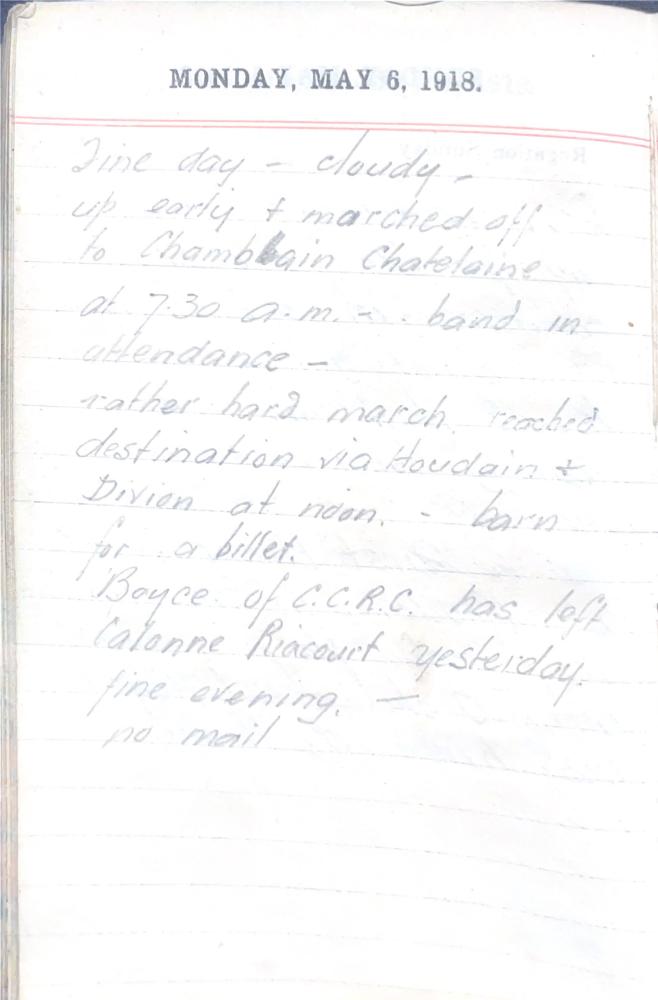 MONDAY, MAY 6, 1918.
Fine day - cloudy -
up early + marched off
to Chamblain Chatelaine
at 7.30 a.m. - . band in
attendance -
rather hard march reached
destination via Houdain +
Divion at noon. - barn
for a billet.
Boyce of C.C.R.C. has left
Calonne Riacourt yesterday.
fine evening. -
no mail